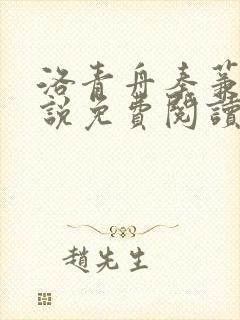 洛青舟秦蒹
說免費閱讀
趙先生